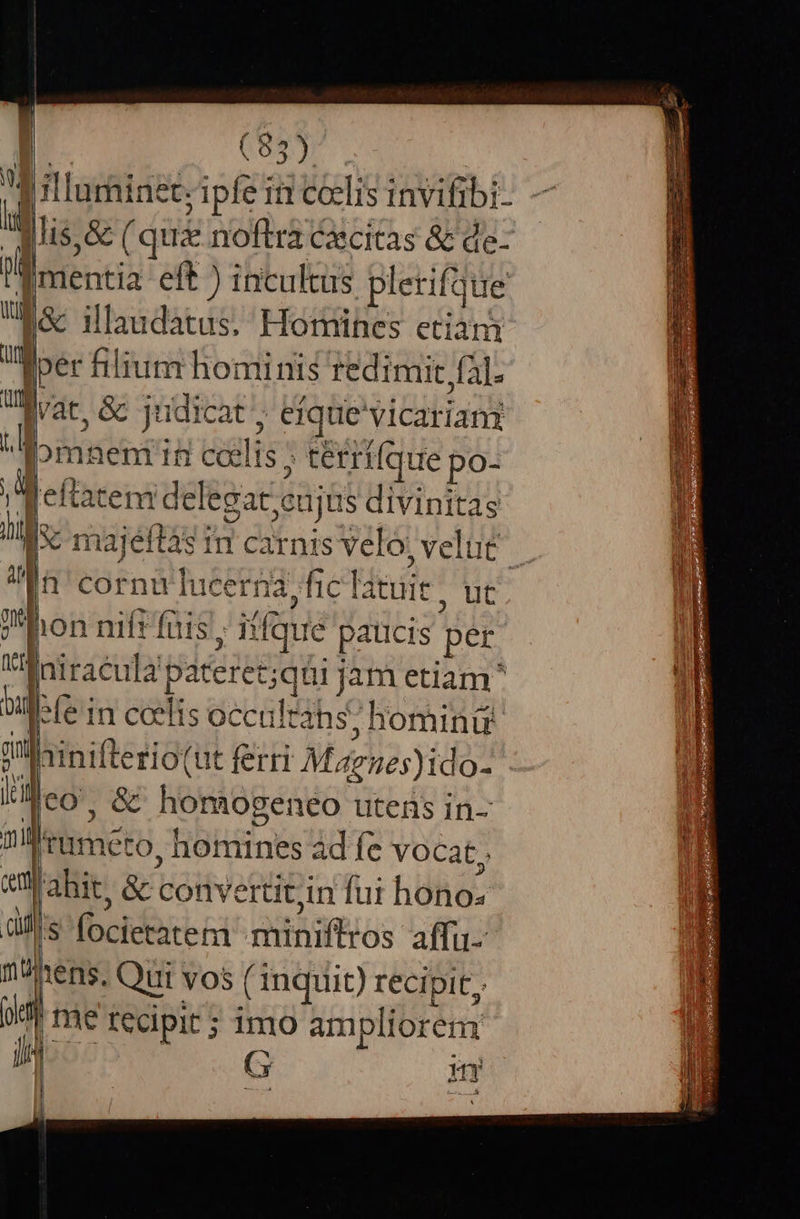 (83)
illuminet, ipſe in cœlis inviſibi-
lis, & (quæ noſtra cæcitas & de-
mentia eſt) incultus pleriſque
& illaudatus. Homines etiam
per filium hominis redimit, ſal-
vat, & judicat, eíque vicariam
omnem in cœlis, terríſque po-
teſtatem delegat, cujus divinitas
& majeſtas in carnis velo, velut
in cornu lucerna, ſic latuit, ut
non niſi ſuis, iíſque paucis per
miracula pateret; qui jam etiam
ipſe in cœlis occultans, hominū
miniſterio (ut ferri Magnes) ido-
neo, & homogeneo utens in-
ſtrumēto, homines ad ſe vocat,
trahit, & convertit, in ſui hono-
ris ſocietatem miniſtros aſſu-
mens. Qui vos (inquit) recipit,
me recipit; imo ampliorem
G in